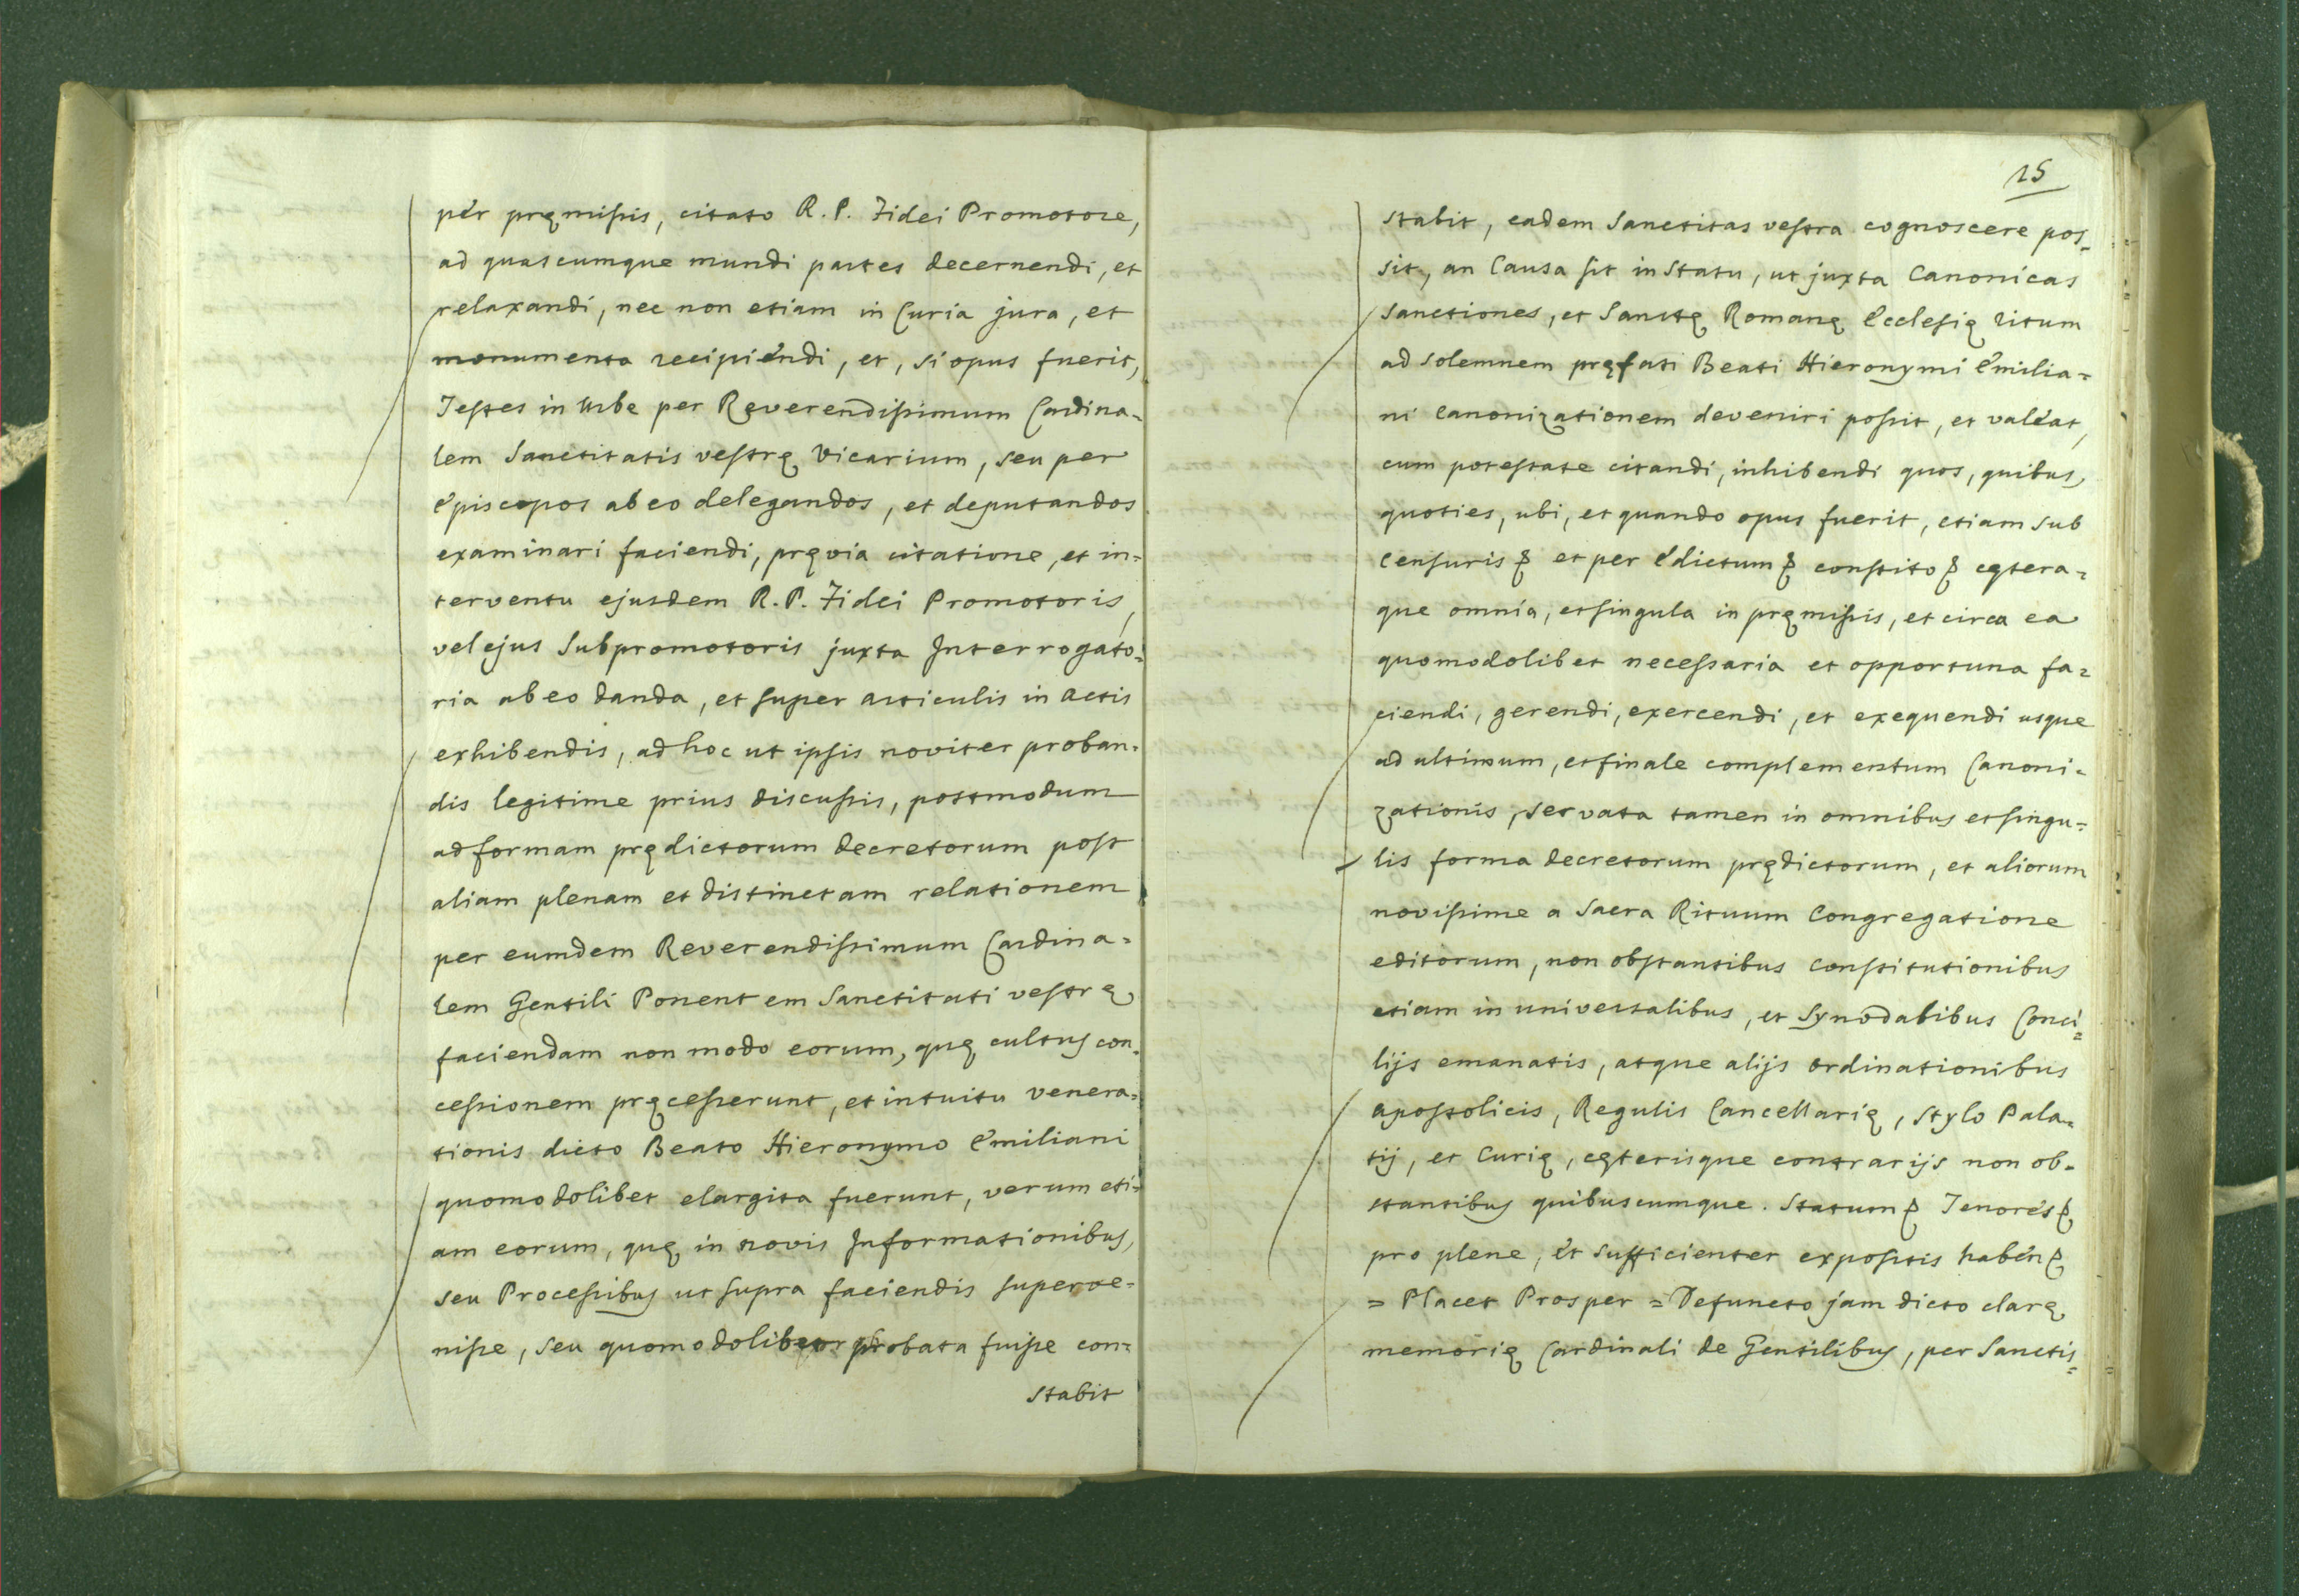 per pręmissis, citato R. P. Fidei Promotore,
ad quascumque mundi partes decernendi, et
relaxandi, nec non etiam in Curia jura, et
monumenta recipiendi, et, si opus fuerit,
Testes in Urbe per Reverendissimum Cardina=
lem Sanctitatis vestrę Vicarium, seu per
Episcopos ab eo delegandos, et deputandos
examinari faciendi, pręvia citatione, et in=
terventu ejusdem R. P. Fidei Promotoris,
vel ejus Subpromotoris juxta Interrogato=
ria ab eo danda, et super articulis in actis
exhibendis, ad hoc ut ipsis noviter proban=
dis legitime prius discussis, postmodum
ad formam prędictorum decretorum post
aliam plenam et distinctam relationem
per eumdem Reverendissimum Cardina=
lem Gentili Ponentem Sanctitati vestrę
faciendam non modo eorum, quę cultus con=
cessionem pręcesserunt, et intuitu venera=
tionis dicto Beato Hieronymo Emiliani
quomodolibet elargita fuerunt, verum eti=
am eorum, quę in novis Informationibus,
seu Processibus ut supra faciendis superve=
nisse, seu quomodolibet probata fuisse con=
stabit
15
stabit, eadem Sanctitas vestra cognoscere pos=
sit, an Causa sit in statu, ut juxta Canonicas
Sanctiones, et Sanctę Romanę Ecclesię ritum
ad solemnem pręfati Beati Hieronymi Emilia=
ni Canonizationem deveniri possit, et valeat,
cum potestate citandi, inhibendi quos, quibus,
quoties, ubi, et quando opus fuerit, etiam sub
Censuris ꝭ et per Edictum ꝭ constito ꝭ cętera=
que omnia, et singula in pręmissis, et circa ea
quomodolibet necessaria et opportuna fa=
ciendi, gerendi, exercendi, et exequendi usque
ad ultimum, et finale complementum Canoni=
zationis, servata tamen in omnibus et singu=
lis forma decretorum prędictorum, et aliorum
novissime a Sacra Rituum Congregatione
editorum, non obstantibus Constitutionibus
etiam in universalibus, et Synodalibus Conci=
lijs emanatis, atque alijs ordinationibus
apostolicis, Regulis Cancellarię, stylo Pala=
tij, et Curię, cęterisque contrarijs non ob=
stantibus quibuscumque. Statum ꝭ Tenores ꝭ
pro plene, et sufficienter expositis haben ꝭ
= Placet Prosper = Defuncto jam dicto clarę
memorię Cardinali de Gentilibus, per Sanctis=